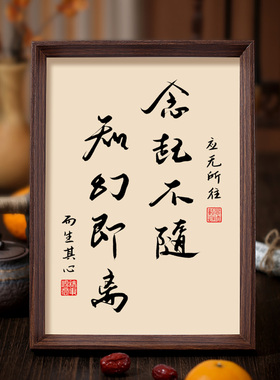 应无所往
念起不隨
知幻即离
而生其心